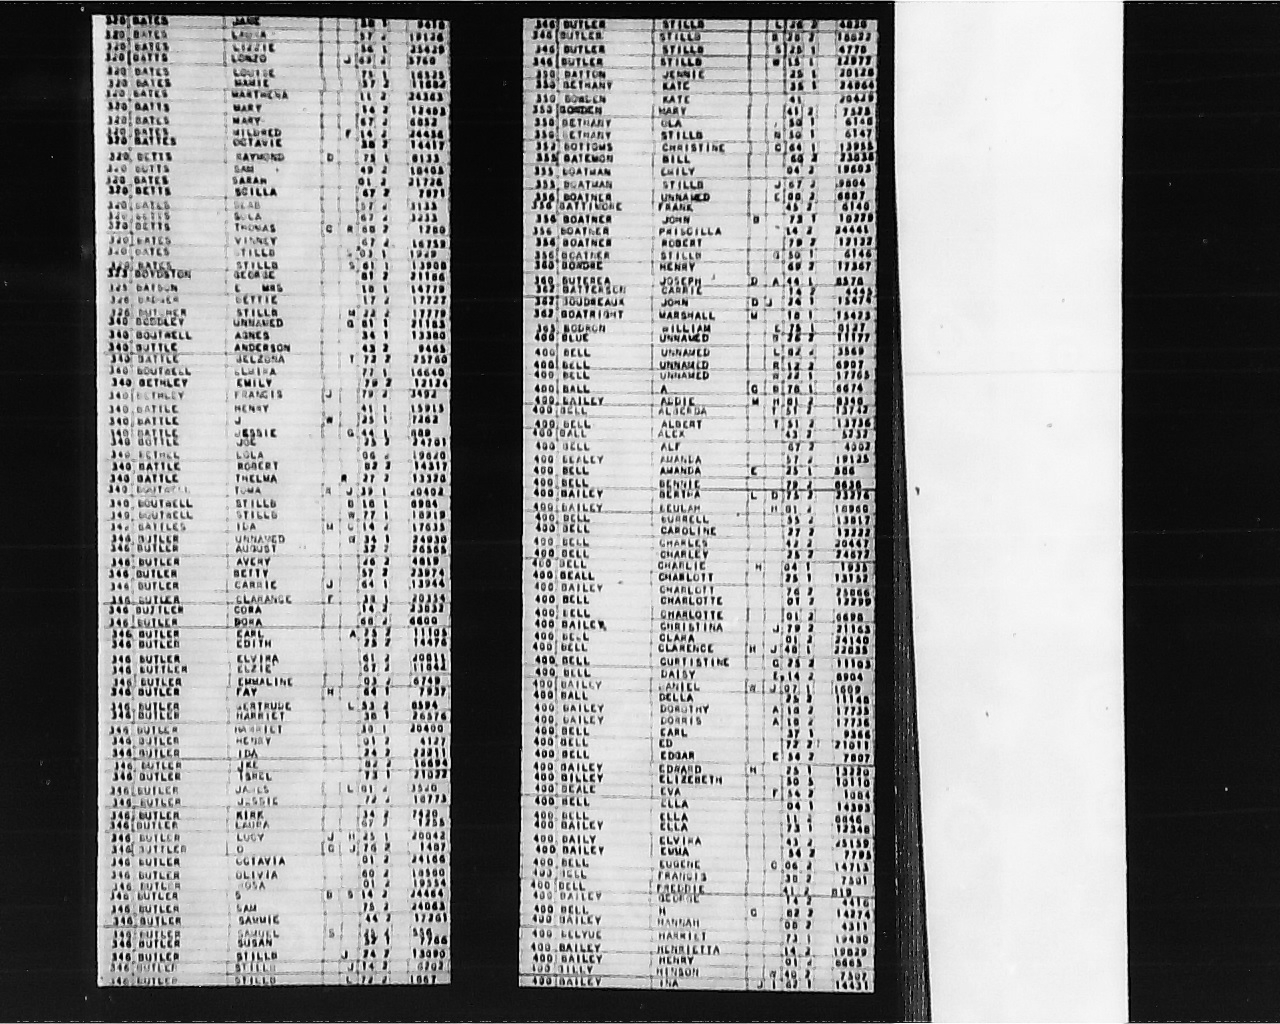 320 BATES JANE 38 1 9478
320 BATES LAURA 57 2 19136
320 BATES LIZZIE 56 1 25429
320 BATTS LONZO J 5760
320 BATES LOUISE 75 1 16525
320 BATES MAMIE 37 2 11682
320 BATES MARTHENA 11 2 24363
320 BATTS MARY 14 2
320 BATES MARY 67 2 6852
320 BATES MILDRED F 14 2 24436
320 BATTES OCTAVIE 38 2 14417
320 BETTS RAYMOND D 75 1 6133
320 BUTTS SAM 49 2 18403
320 BATES SARAH 01 2 21726
320 BETTS SCILLA 67 2 7871
320 BATES 57 2 3133
320 BETTS SULA 67 2 3233
320 BETTS THOMAS C R 60 2 1280
320 BATES VINNEY 67 2 16759
320 BATES STILLB S 03 1
320 BATES STILLB S 61 1 13908
323 BOYDSTON GEORGE 01 2 21186
325 BATSON E MRS 10 1 14779
326 BADGER BETTIE 17 2 17727
326 BUTCHER STILLB M 22 2 17779
340 BODDLEY UNNAMED G 01 1 21183
340 BOUTWELL AGNES 34 1 13380
340 BUTTLE ANDERSON 43 2 9465
340 BATTLE BELZONA T 72 2 25760
340 BOUTWELL ELMIRA 77 1 16640
340 BETHLEY EMILY 79 2 12124
340 BETHLEY FRANCIS J 79 2 3492
340 BATTLE HENRY 41 1 15915
340 BATTLE J W 25 1 7262
340 BATTLE JESSIE G 44 1 600
340 BOTTLE JOE 25 2 24701
340 BETHEL LOLA 06 2 19620
340 BATTLE ROBERT 82 2 14317
340 BATTLE THELMA R 27 2 13320
340 BOUTWELL TOMA R J 39 1 20402
340 BOUTWELL STILLB B 18 1 6984
340 BOUTWELL STILLB W 77 1 18919
342 BATTLES IDA M C 14 2 17635
346 BUTLER UNNAMED W 34 1 24930
346 BUTLER AUGUST 32 2 26565
346 BUTLER AVERY 26 2 4819
346 BUTLER BETTY 57 2 23974
346 BUTLER CARRIE J 64 1 13944
346 BUTLER CLARANCE F 38 1 20354
346 BUTTLER CORA 14 2 23032
346 BUTLER DORA 60 2 6600
346 BUTLER EARL A 25 2 11105
346 BUTLER EDITH 25 2 24676
346 BUTLER ELVIRA 61 2 20811
346 BUTTLER ELZIE 67 2 11042
346 BUTLER EMMALINE 03 2 6749
346 BUTLER FAY H 64 1 7937
346 BUTLER GERTRUDE L 53 2 6594
346 BUTLER HARRIET 38 1 26576
346 BUTLER HARRIET 30 1 20400
346 BUTLER HENRY 01 2 4127
346 BUTLER IDA 24 2 22811
346 BUTLER IKE 82 2 16694
346 BUTLER ISREL 73 1 21022
346 BUTLER JAMES L 01 2 3520
346 BUTLER JESSIE 72 2 10773
346 BUTLER KIRK 34 2 7420
346 BUTLER LAURA 67 2 1255
346 BUTLER LUCY J H 25 1 20042
346 BUTLER O G J 76 2 1407
346 BUTLER OCTAVIA 01 2 24166
346 BUTLER OLIVIA 60 2 18560
346 BUTLER ROSA 01 2 19554
346 BUTLER S B S 14 2 24464
346 BUTLER SAM 75 2 24063
346 BUTLER SAMMIE 44 2 17261
346 BUTLER SAMUEL S 25 2 556
346 BUTLER SUSAN 52 1 7766
346 BUTLER STILLB J 24 2 13090
346 BUTLER STILLB J 14 2 6202
346 BUTLER STILLB L 72 2 1867
346 BUTLER STILLB L 26 2 4830
346 BUTLER STILLB R 20 2 16022
346 BUTLER STILLB S 25 1 4778
346 BUTLER STILLB W 15 1 22977
350 BATTON JENNIE 25 1 20128
350 BETHANY KATE 35 1 24964
350 BOWDEN KATE 41 20429
350 BOWDEN MARY 41 2 7525
350 BETHANY OLA 50 1 6148
350 BETHANY STILLB N 50 1 6147
352 BOTTOMS CHRISTINE C 64 1 13955
355 BATEMON BILL 60 2 23038
355 BOATMAN EMILY 04 2 19603
355 BOATMAN STILLB J 67 2 9804
356 BOATNER UNNAMED E 08 2 6887
356 BATTIMORE FRANK 45 2 6140
356 BOATNER JOHN B 73 1 10279
356 BOATNER PRISCILLA 14 2 24465
356 BOATNER ROBERT 79 2 12132
356 BOATNER STILLB G 50 1 6146
360 BONDRE HENRY 69 2 17367
360 BUTEREA JOSEPH D A 44 1 8578
362 BATTERSON CARRIE 14 2 4445
362 BOUDREAUX JOHN D J 24 1 15474
362 BOATRIGHT MARSHALL M 10 1 15423
365 BODRON WILLIAM E 75 1 8127
400 BLUE UNNAMED B 26 2 11177
400 BELL UNNAMED L 82 2 3569
400 BELL UNNAMED R 12 2 6907
400 BELL UNNAMED W 22 1 17765
400 BALL A G R 78 1 6674
400 BAILEY ADDIE M H 01 2 8340
400 BELL ALBERDA T 51 2 13742
400 BELL ALBERT T 51 2 13736
400 BALL ALEX 43 2 5232
400 BELL ALF 67 2 4002
400 BEALEY AMANDA 57 2 19125
400 BELL AMANDA E 25 1 586
400 BELL BENNIE 79 2 6636
400 BAILEY BERTHA L D 75 2 23276
400 BAILEY BEULAH H 01 2 18960
400 BELL BURRELL 55 2 13817
400 BELL CAROLINE 27 2 13222
400 BELL CHARLES 42 2 20857
400 BELL CHARLEY 25 2 24672
400 BELL CHARLIE H 04 1 1935
400 BEALL CHARLOTT 25 1 13152
400 BAILEY CHARLOTT 76 2 25066
400 BELL CHARLOTTE 01 2 12799
400 BELL CHARLOTTE 01 2 6698
400 BAILEY CHRISTINA J 79 2 21163
400 BELL CLARA 01 2 24140
400 BELL CLARENCE H J 40 1 22035
400 BELL CURTISTINE C 25 2 11103
400 BELL DAISY E 14 2 8904
400 BAILEY DANIEL W J 07 1 1609
400 BALL DELLA 25 2 1148
400 BAILEY DOROTHY A 10 2 17735
400 BAILEY DORRIS A 10 2 17736
400 BELL EARL 37 1 9366
400 BELL ED 72 2 21011
400 BELL EDGAR E 54 2 7807
400 BAILEY EDWARD H 25 1 13220
400 BILLEY ELIZEBETH 50 5 10110
400 BEALE EVA F 54 2 1083
400 BELL ELLA 04 1 14393
400 BELL ELLA 11 2 8846
400 BAILEY ELLA 73 1 12348
400 DAILY ELVIRA 43 2 25159
400 BAILEY EMMA 54 2 7795
400 BELL EUGENE C 06 2 14713
400 BELL FRANCIS 38 2 7501
400 BELL FREDDIE 41 2 819
400 BAILEY GEORGE 14 2 4416
400 BELL H C 82 2 14274
400 BAILEY HANNAH 08 2 4311
400 BELVUE HARRIET 73 1 19480
400 BAILEY HENRIETTA 14 2 19829
400 BAILEY HENRY 01 2 8665
400 BILLY HINSON W 40 2 7507
400 BAILEY INA J I 62 1 14431